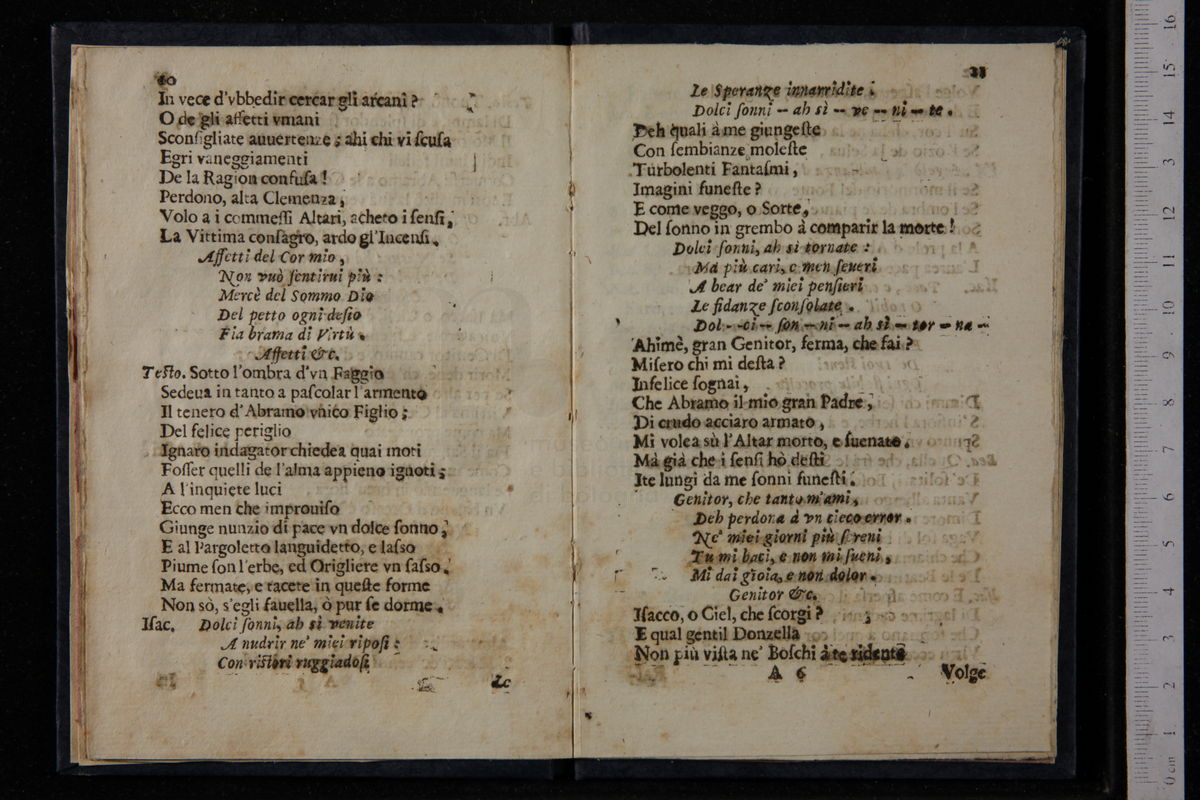 10
In vece d'vbbedir cercar gli arcani ?
O de gli affetti vmani
Sconſigliate auuertenze ; ahi chi vi ſcuſa
Egri vaneggiamenti
De la Ragion confuſa !
Perdono, alta Clemenza,
Volo a i commeſſi Altari, acheto i ſenſi,
La Vittima conſagro, ardo gl'Incenſi.
Affetti del Cor mio,
Non vuò ſentirui più :
Mercè del Sommo Dio
Del petto ogni deſio
Fia brama di Virtù.
Affetti &c.
Teſto. Sotto l'ombra d'vn Faggio
Sedeua in tanto a paſcolar l'armento
Il tenero d'Abramo vnico Figlio ;
Del felice periglio
Ignaro indagator chiedea quai moti
Foſſer quelli de l'alma appieno ignoti ;
A l'inquiete luci
Ecco men che improuiſo
Giunge nunzio di pace vn dolce ſonno ;
E al Pargoletto languidetto, e laſſo
Piume ſon l'erbe, ed Origliere vn ſaſſo.
Ma fermate, e tacete in queſte forme
Non sò, s'egli fauella, ò pur ſe dorme.
Iſac. Dolci ſonni, ah sì venite
A nudrir ne' miei ripoſi :
Con riſtori ruggiadoſi
Le
11
Le Speranze innarridite :
Dolci ſonni -- ah sì -- ve -- ni -- te.
Deh quali à me giungeſte
Con ſembianze moleſte
Turbolenti Fantaſmi,
Imagini funeſte ?
E come veggo, o Sorte,
Del ſonno in grembo à comparir la morte !
Dolci ſonni, ah sì tornate :
Ma più cari, e men ſeueri
A bear de' miei penſieri
Le fidanze ſconſolate.
Dol -- ci -- ſon -- ni -- ah sì -- tor -- na --
Ahimè, gran Genitor, ferma, che fai ?
Miſero chi mi deſta ?
Infelice ſognai,
Che Abramo il mio gran Padre,
Di crudo acciaro armato,
Mi volea sù l'Altar morto, e ſuenato.
Mà già che i ſenſi hò deſti
Ite lungi da me ſonni funeſti.
Genitor, che tanto m'ami,
Deh perdona à vn cieco error.
Ne' miei giorni più ſereni
Tu mi baci, e non mi ſueni,
Mi dai gioia, e non dolor.
Genitor &c.
Iſacco, o Ciel, che ſcorgi ?
E qual gentil Donzella
Non più viſta ne' Boſchi à te ridente
A 6
Volge